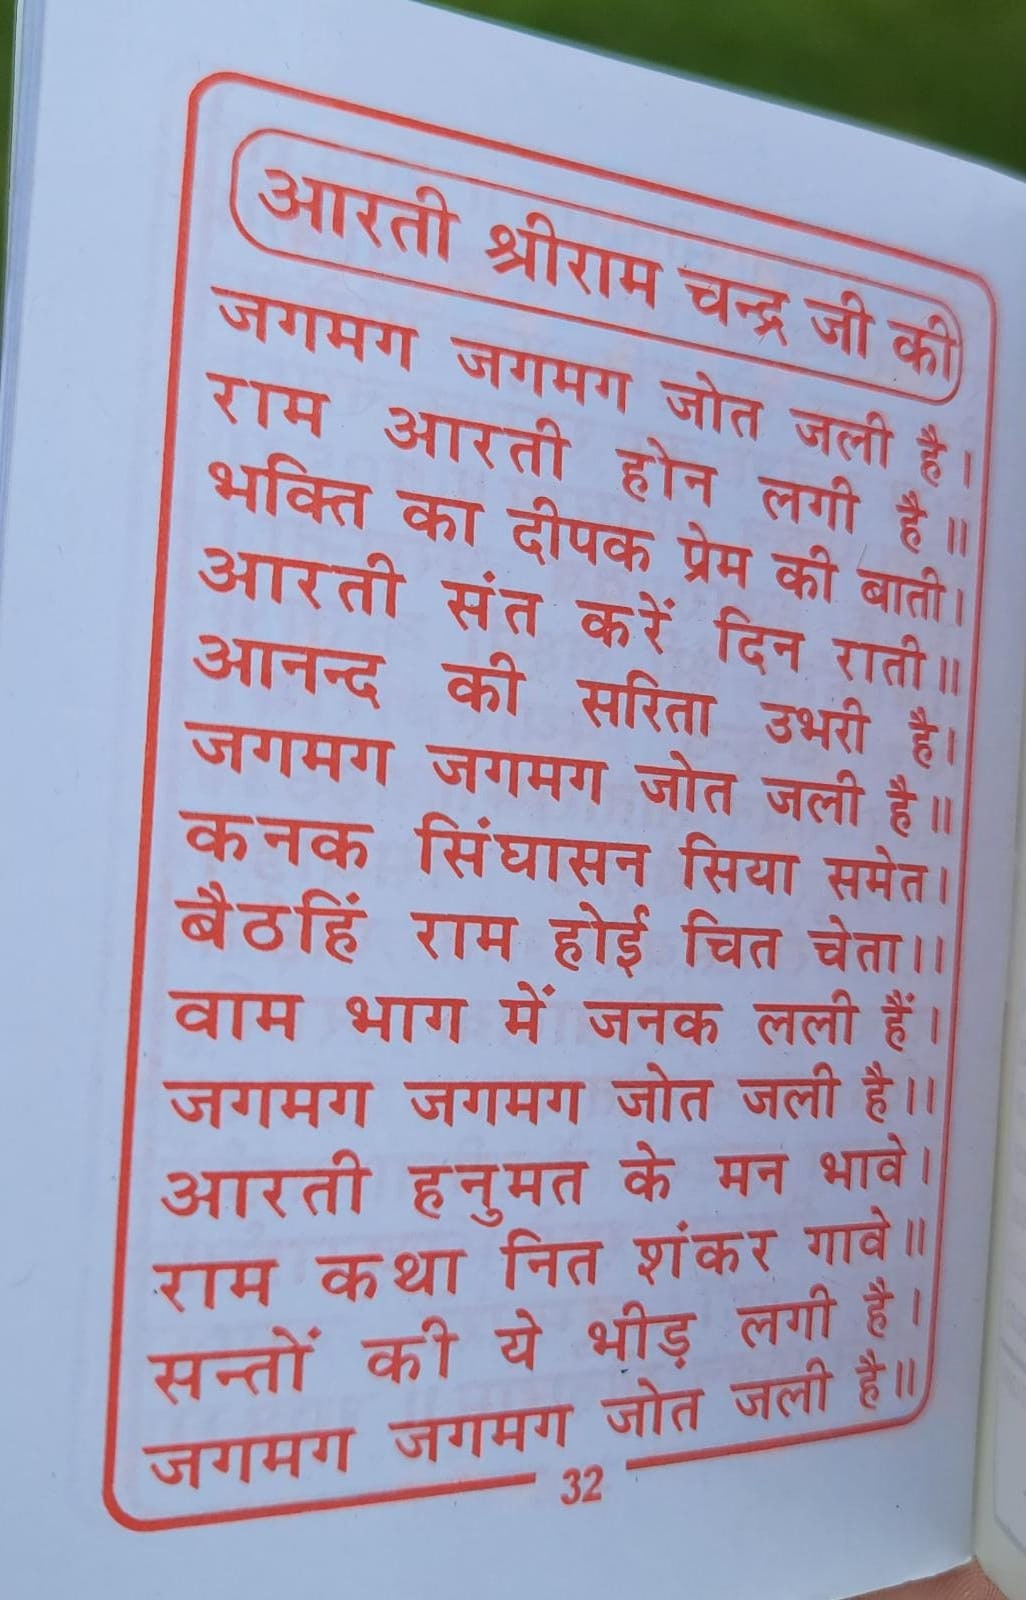 आरती श्रीराम चन्द्र जी की
जगमग जगमग जोत जली है।
राम आरती होन लगी है॥
भक्ति का दीपक प्रेम की बाती।
आरती संत करें दिन राती॥
आनन्द की सरिता उभरी है।
जगमग जगमग जोत जली है॥
कनक सिंघासन सिया समेत।
बैठहिं राम होई चित चेता।।
वाम भाग में जनक लली हैं।
जगमग जगमग जोत जली है।।
आरती हनुमत के मन भावे।
राम कथा नित शंकर गावे॥
सन्तों की ये भीड़ लगी है।
जगमग जगमग जोत जली है॥
32